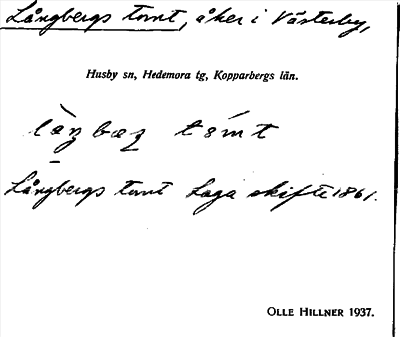 Långbergs tomt, åker i Västerby,
Husby sn, Hedemora tg, Kopparbergs län.
Långbergs tomt Laga skifte 1861.
OLLE HILLNER 1937.